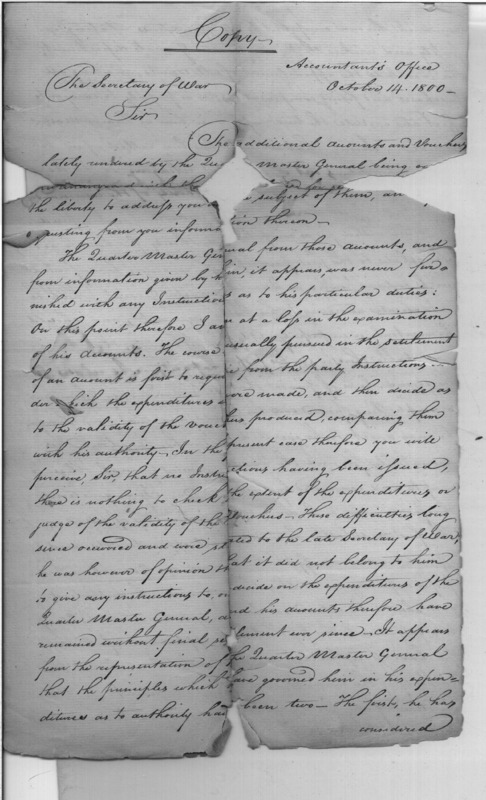 Copy
Accountant's Office
October 14. 1800
The Secretary of War
Sir
The additional accounts and Vouchers
lately rendered by the Qu Master General being
subject of them,
the liberty to address you
questing from you informa tion thereon
The Quarter Master Gen eral from those accounts, and
from information given by him, it appears was never fur
nished with any Instructions as to his particular duties:
On this point therefore I am at a loss in the examination
of his accounts. The course usually pursued in the settlement
of an account is first to require from the party Instructions
der which the expenditures were made, and then decide as
to the validity of the vouchers produced, comparing them
with his authority. In the present case therefore you will
perceive Sir, that no Instructions having been issued,
there is nothing to check the extent of the expenditures or
judge of the validity of the Vouchers. These difficulties long
since occurred and were stated to the late Secretary of War,
he was however of opinion that it did not belong to him
to give any instructions to, or decide on the expenditures of the
Quarter Master General, and his accounts therefore have
remained without final settlement ever since. It appears
from the representation of the Quarter Master General
that the principles which have governed him in his expen=
ditures as to authority have been two — The first, he has
considered